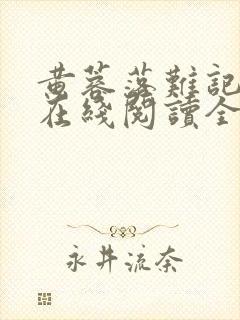 黄蓉落難記
在綫閱讀全
永井流奈